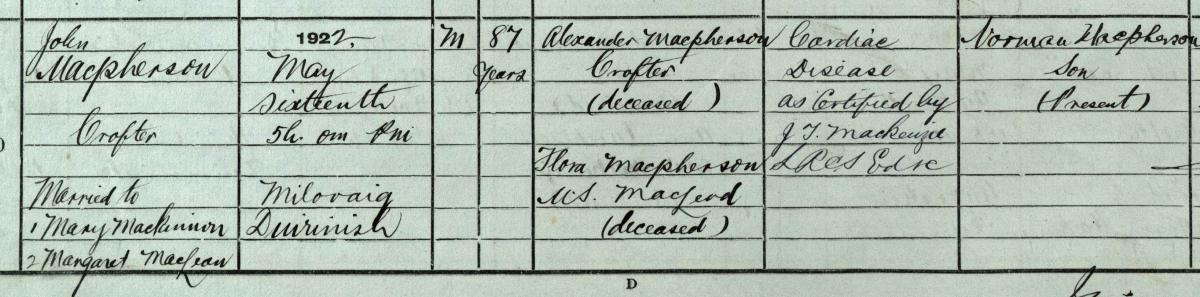 John
Macpherson
Crofter
Married to
1 Mary Mackinnon
2 Margaret MacLean
1922.
May
Sixteenth
5h. 0m PM
Milovaig
Duirinish
M
87
years
Alexander Macpherson
Crofter
(deceased)
Flora Macpherson
M.S. MacLeod
(deceased)
Cardiac
Disease
as Certified by
J T. Mackenzie
LRCS Edin
Norman Macpherson
Son
(Present)
D